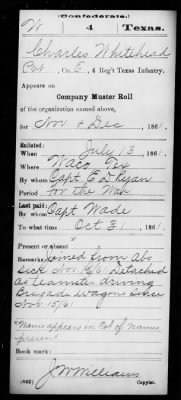 (Confederate.)
W 4 Texas.
Charles Whitehead
Co. E, 4 Reg't Texas Infantry.
Appears on
Company Muster Roll
of the organization named above,
for Nov & Dec, 1861.
Enlisted:
When July 13, 1861.
Where Waco Tex
By whom Capt. E D Ryan
Period For the War
Last paid:
By whom Capt Wade
To what time Oct 31, 1861.
Present or absent
Remarks: Joined from Abs
sick Nov Detached
as teamster driving
Brigade Wagons since
Nov 15/61
*Name appears in Col of names
present
Book mark:
J W Williams
(642) Copyist.